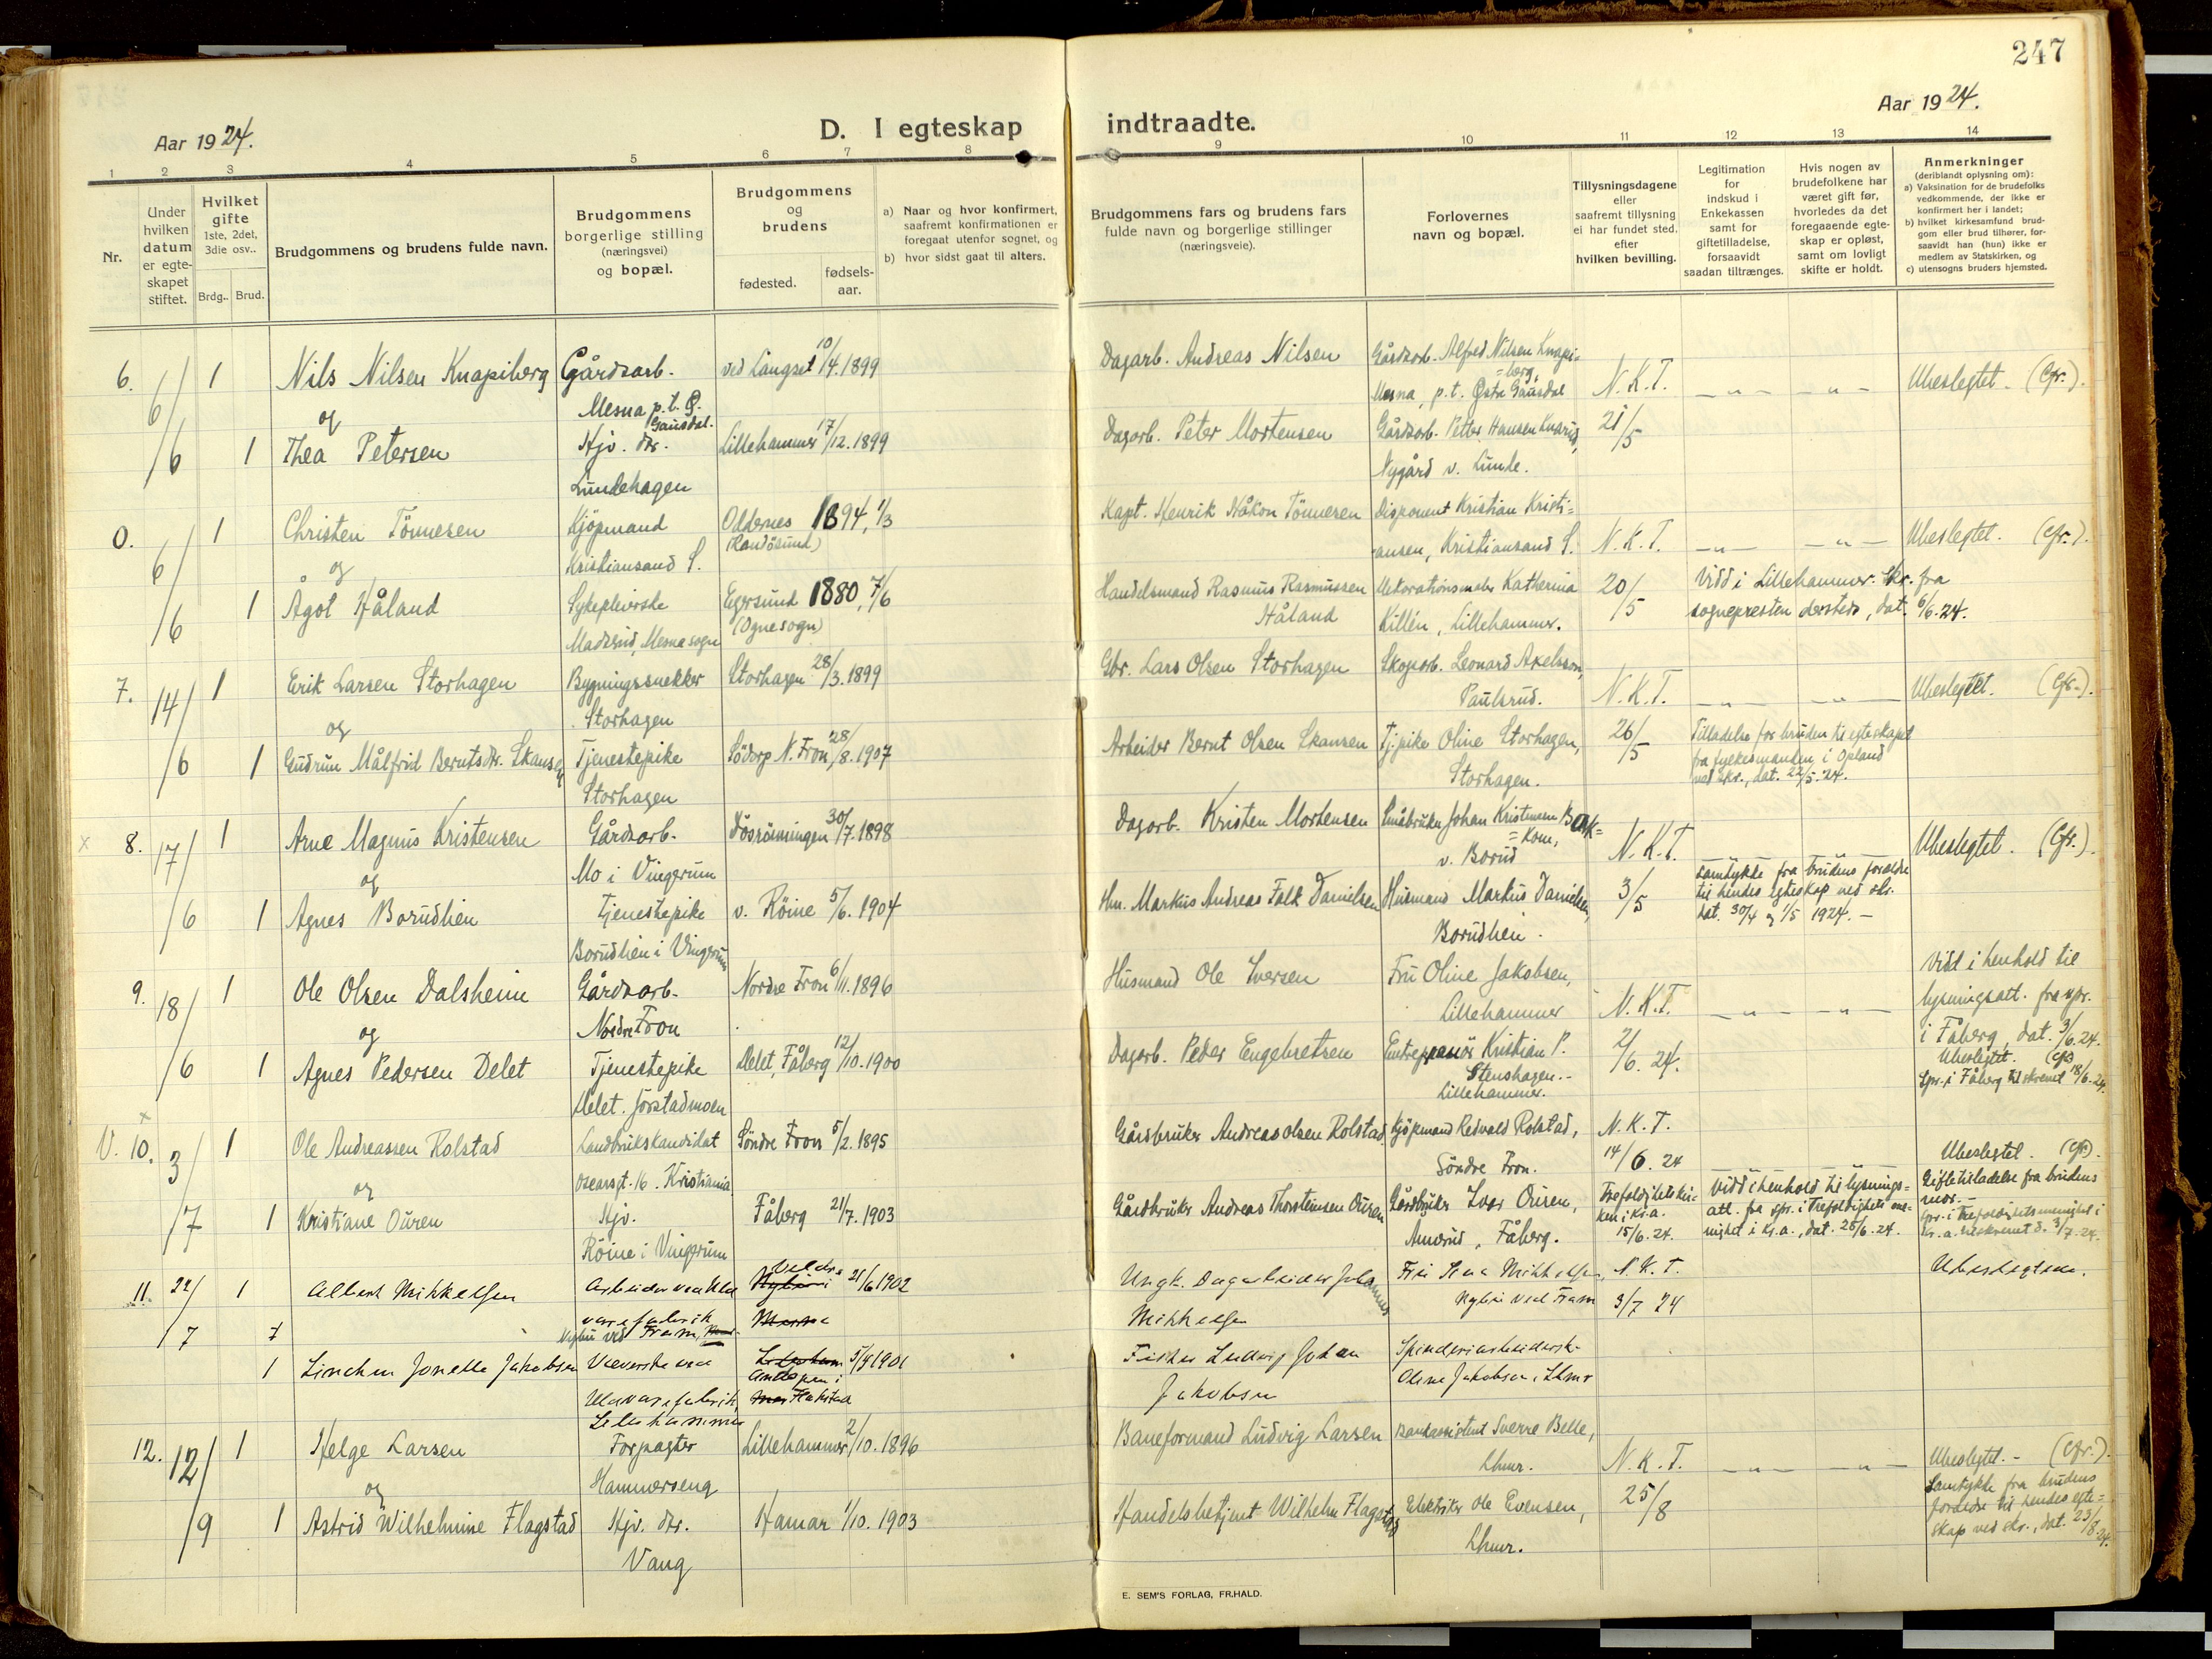 247
Aar 1924.
D. I egteskap indtraadte.
Aar 1924.
1 2 3 4 5 6 7 8 9 10 11 12 13 14
Nr.
Under hvilken datum er egteskapet stiftet.
Hvilket gifte 1ste, 2det, 3die osv..
Brdg.. Brud.
Brudgommens og brudens fulde navn.
Brudgommens borgerlige stilling (næringsvei) og bopæl.
Brudgommens og brudens
fødested. fødsels-aar.
a) Naar og hvor konfirmert, saafremt konfirmationen er foregaat utenfor sognet, og
b) hvor sidst gaat til alters.
Brudgommens fars og brudens fars fulde navn og borgerlige stillinger (næringsveie).
Forlovernes navn og bopæl.
Tillysningsdagene eller saafremt tillysning ei har fundet sted. efter hvilken bevilling.
Legitimation for indskud i Enkekassen samt for giftetilladelse, forsaavidt saadan tiltrænges.
Hvis nogen av brudefolkene har været gift før, hvorledes da det foregaaende egteskap er opløst, samt om lovligt skifte er holdt.
Anmerkninger (deriblandt oplysning om):
a) Vaksination for de brudefolks vedkommende, der ikke er konfirmert her i landet;
b) hvilket kirkesamfund brudgom eller brud tilhører, forsaavidt han (hun) ikke er medlem av Statskirken, og
c) utensogns bruders hjemsted.
6. 6/6 1 Nils Nilsen Knapiberg Gårdsarb. ved Langset 10/4.1899 Dagarb. Andreas Nilsen Gårdsarb. Alfred Nilsen Knapi=
=berg,
og Mesna p.t. Ø. Gausdal. Mesna, p.t. Østre Gausdal N.K.T. —"— —"— Ubeslegtet. (Cfr.).
1 Thea Petersen Hjv. dtr. Lillehammer 17/12.1899 Dagarb. Peter Mortensen Gårdsarb. Petter Hansen 21/5
Lundehagen Nygård v. Lunde.
0. 6/6 1 Christen Tönnesen Kjöpmand Oddernes 1894, 1/3 Kapt. Henrik Håkon Tönnesen Disponent Kristian Kristi=
og Kristiansand S. (Randösund) ansen, Kristiansand S. N.K.T. —"— —"— Ubeslegtet. (Cfr.).
1 Ågot Håland Sykepleierske Egersund 1880, 7/6 Handelsmand Rasmus Rasmussen Dekorationsmaler Katharina 20/5 Vidd i Lillehammer. Skr. fra
Madsrud, Mesna sogn (Ogne sogn) Håland Killén, Lillehammer. sognepresten dersteds, dat. 6/6.24.
7. 14/6 1 Erik Larsen Storhagen Bygningssnekker Storhagen 28/3.1899 Gbr. Lars Olsen Storhagen Skogarb. Leonard Axelsson,
og Storhagen Paulsrud. N.K.T. —"— —"— Ubeslegtet. (Cfr.).
1 Gudrun Målfrid Berntsdtr. Skansen Tjenestepike Södorp N. Fron 28/8.1907 Arbeider Bernt Olsen Skansen Tj.pike Oline Storhagen, 26/5 Tilladelse for bruden til egteskapet
Storhagen Storhagen. fra fylkesmanden i Opland
ved skr., dat. 22/5.24.
x 8. 17/6 1 Arne Magnus Kristensen Gårdsarb. 30/7.1898 Dagarb. Kristen Mortensen Småbruker Johan Kristensen Bak=
=kom,
og Mo i Vingerum v. Borud N.K.T. Ubeslegtet. (Cfr.).
1 Agnes Borudlien Tjenestepike v. Röine 5/6.1904 Hm. Markus Andreas Falk Danielsen Husmand Markus Danielsen, 3/5 Samtykke fra brudens foreldre
Borudlien i Vingerum Borudlien. til hendes egteskap ved skr.
dat. 30/4 og 1/5 1924.—
9. 18/6 1 Ole Olsen Dalsheim Gårdsarb. Nordre Fron 6/11.1896 Husmand Ole Iversen Fru Oline Jakobsen, Vidd i henhold til
og Nordre Fron Lillehammer N.K.T. —"— —"— lysningsatt. fra spr.
1 Agnes Pedersen Delet Tjenestepike Delet, Fåberg 12/10.1900 Dagarb. Peder Engebretsen Entreprenör Kristian P. 2/6.24. i Fåberg, dat. 3/6.24.
Delet. Jörstadmoen Stenshagen.- Lillehammer. Ubeslegtet. (Cfr.)
Spr. i Fåberg tilskrevet 18/6.24.
V. 10. x 3/7 1 Ole Andreassen Rolstad Landbrukskandidat Söndre Fron 5/2.1895 Gårdbruker Andreas Olsen Rolstad Kjöpmand Redvald Rolstad, N.K.T.
og Oscarsgt. 16. Kristiania. Söndre Fron. 14/6.24 Ubeslegtet. (Cfr.).
1 Kristiane Ouren Hjv. Fåberg 21/7.1903 Gårdbruker Andreas Thorstensen Ouren Gårdbruker Ivar Ouren, Trefoldighetskir-
ken i Kr.a. Vidd i henhold til lysnings= Giftetilladelse fra brudens
mor.—
Röine i Vingerum Amerud, Fåberg. 15/6.24. att. fra spr. i Trefoldighets me-
nighet i Kr.a., dat. 26/6.24. Spr. i Trefoldighetsmenighet i
Kr.a. tilskrevet d. 3/7.24.
11. 22/7 1 Albert Mikkelsen Arbeider ved Uld
varefabrik 21/6 1902 Ungk. Dagarbeider Johannes
Mikkelsen Fru Mikkelsen, N.K.T.
Nybu ved Fram 3/7 24 Ubeslegtede.
Nybu ved Fram,
1 Linchen Jonette Jakobsen Veverske ved 5/9 1901 Fisker Ludvig Johan
Jakobsen Spinderiarbeiderske
Olena Jakobsen, Lhmr
Uldvarefabrik,
Lillehammer Flakstad
12. 12/9 1 Helge Larsen Forpagter Lillehammer 2/10.1896 Baneformand Ludvig Larsen Bankassistent Sverre Belle,
og Hammerseng Lhmr. N.K.T. —"— —"— Ubeslegtet.- (Cfr.).
1 Astrid Wilhelmine Flagstad Hjv. dtr. Hamar 1/10.1903 Handelsbetjent Wilhelm Flagstad Elektriker Ole Evensen, 25/8 Samtykke fra brudens
Vang Lhmr. foreldre til hendes egte=
skap ved skr., dat. 23/8.24.
E. SEM'S FORLAG, FR.HALD.